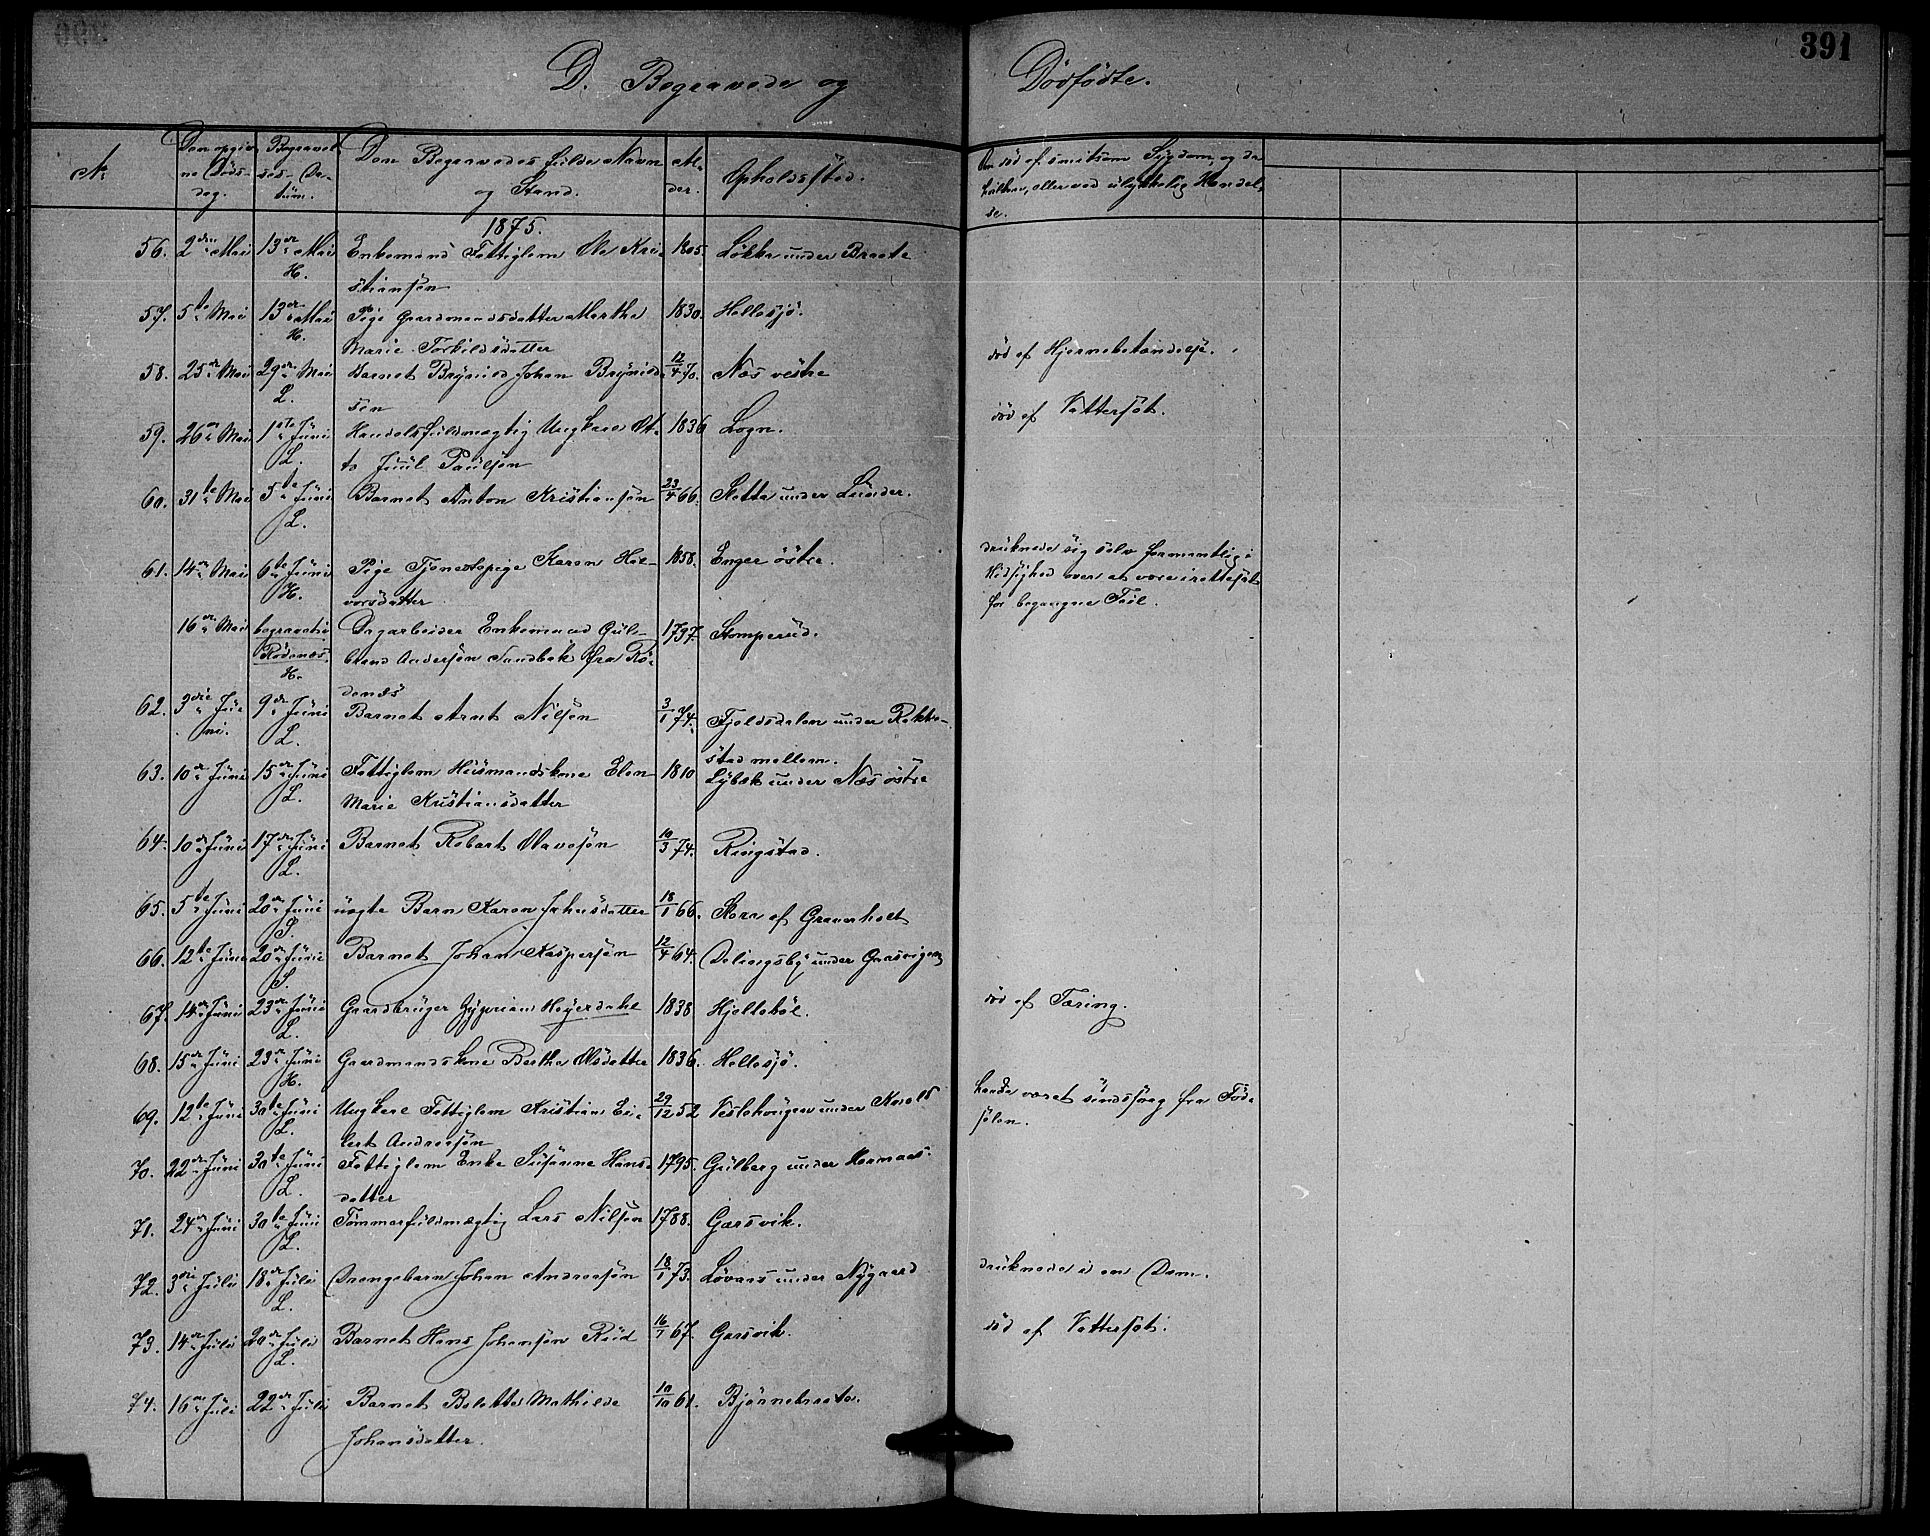 391
D. Begravede og Dødfødte.
N.
Den opgivne Dødsdag.
Begravelses-Datum.
Den Begravedes fulde Navn og Stand.
Alder.
Opholdssted.
Om død af smitsom Sygdom, og da hvilken, eller ved ulykkelig Hændelse.
1875.
56. 2den Mai 13de Mai H. Enkemand Fattiglem Ole Kristiansen 1805. Løkka under Braate
57. 5te Mai 13de Mai H. Pige Gaardmandsdatter Marthe Marie Torkildsdatter 1830. Hellesjø.
58. 25de Mai 29de Mai L. Barnet Brynild Johan Brynildsen 12/4 70. Næs vestre død af Hjernebetændelse.
59. 26de Mai 1ste Juni L. Handelsfuldmægtig Ungkarl Otto Juul Paulsen 1836 Logn. død af Vattersot.
60. 31te Mai 5te Juni L. Barnet Anton Kristiansen 23/4 66. Sletta under Lunder.
61. 14de Mai 6te Juni H. Pige Tjenestepige Karen Halvorsdatter 1858. Enger østre. druknede sig selv formentlig i Hidsighed over at være irettesat for begangne Feil.
16de Mai begravet i Rødenæs. H. Dagarbeider Enkemand Gulbrand Andersen Sandbæk fra Rødenæs 1797. Stomperud.
62. 3die Juni. 9de Juni L. Barnet Arnt Nilsen 3/1 74. Fjeldsdalen under Rakkestad mellem.
63. 10de Juni 15de Juni L. Fattiglem Husmandskone Elen Marie Kristiansdatter 1810 Lybæk under Næs østre
64. 10de Juni 17de Juni L. Barnet Robert Olavesen 10/3 74. Ringstad.
65. 5te Juni 20de Juni S. uægte Barn Karen Johansdatter 18/1 66. Skora af Graverholt
66. 12te Juni 20de Juni S. Barnet Johan Kaspersen 12/4 64. Delingsby under Gaasvigen
67. 14de Juni 23de Juni L. Gaardbruger Zyprian Høyerdahl 1838 Hjeltebøl. død af Tæring.
68. 15de Juni 23de Juni H. Gaardmandskone Berthe Olsdatter 1836. Hellesjø.
69. 12te Juni 30te Juni L. Ungkarl Fattiglem Kristian Eilert Andreasen 29/12 52 Veslehaugen under Knold havde været sindssvag fra Fødselen.
70. 22de Juni 30te Juni L. Fattiglem Enke Susanne Hansdatter 1795. Gulberg under Mornaas.
71. 24de Juni 30te Juni L. Tømmerfuldmægtig Lars Nilsen 1788. Garsvik.
72. 3die Juli 18de Juli L. Drengebarn Johan Andreasen 18/1 73. Løvaas under Nygaard druknede i en Dam.
73. 14de Juli 20de Juli L. Barnet Hans Johansen Rud 16/1 67. Garsvik. død af Vattersot.
74. 16de Juli 22de Juli Barnet Bolette Mathilde Johansdatter. 10/10 61. Bjørnebraate.